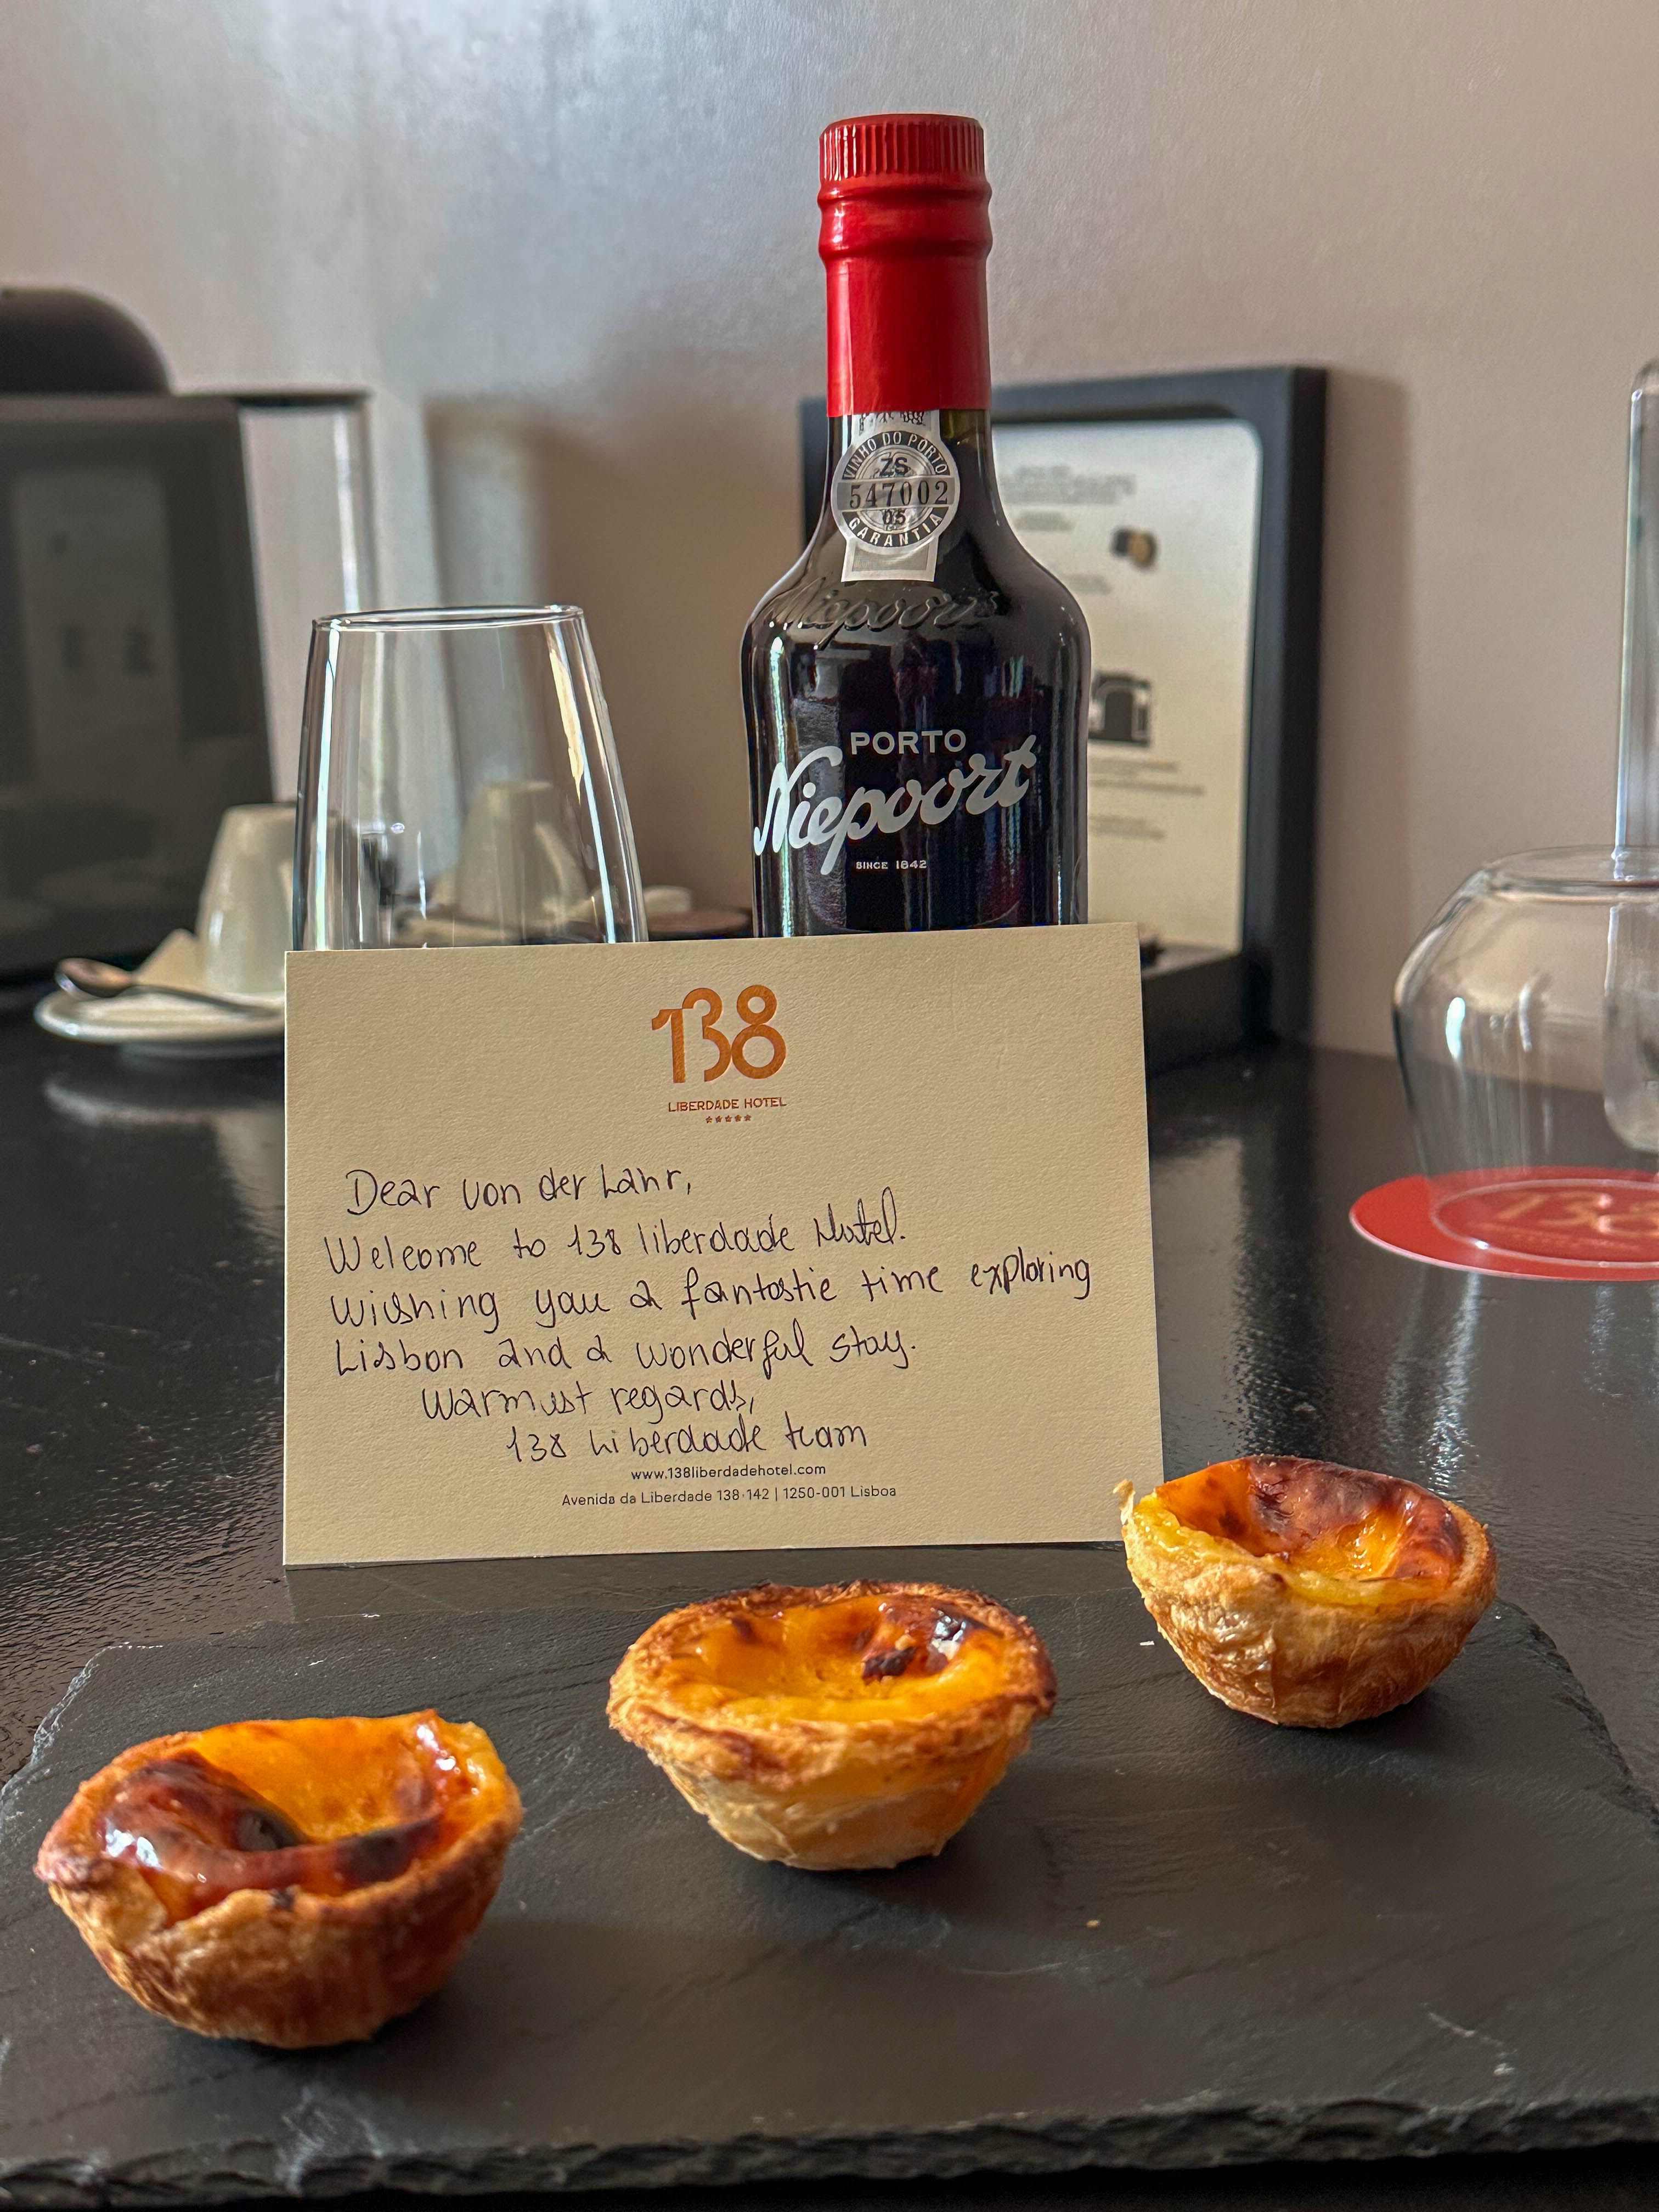 VINHO DO PORTO
ZS
547002
05
GARANTIA
Niepoort
PORTO
Niepoort
SINCE 1842
138
LIBERDADE HOTEL
Dear von der Lahr,
Welcome to 138 liberdade Hotel.
Wishing you a fantastic time exploring
Lisbon and a wonderful stay.
Warmest regards,
138 Liberdade team
www.138liberdadehotel.com
Avenida da Liberdade 138·142 | 1250-001 Lisboa
138